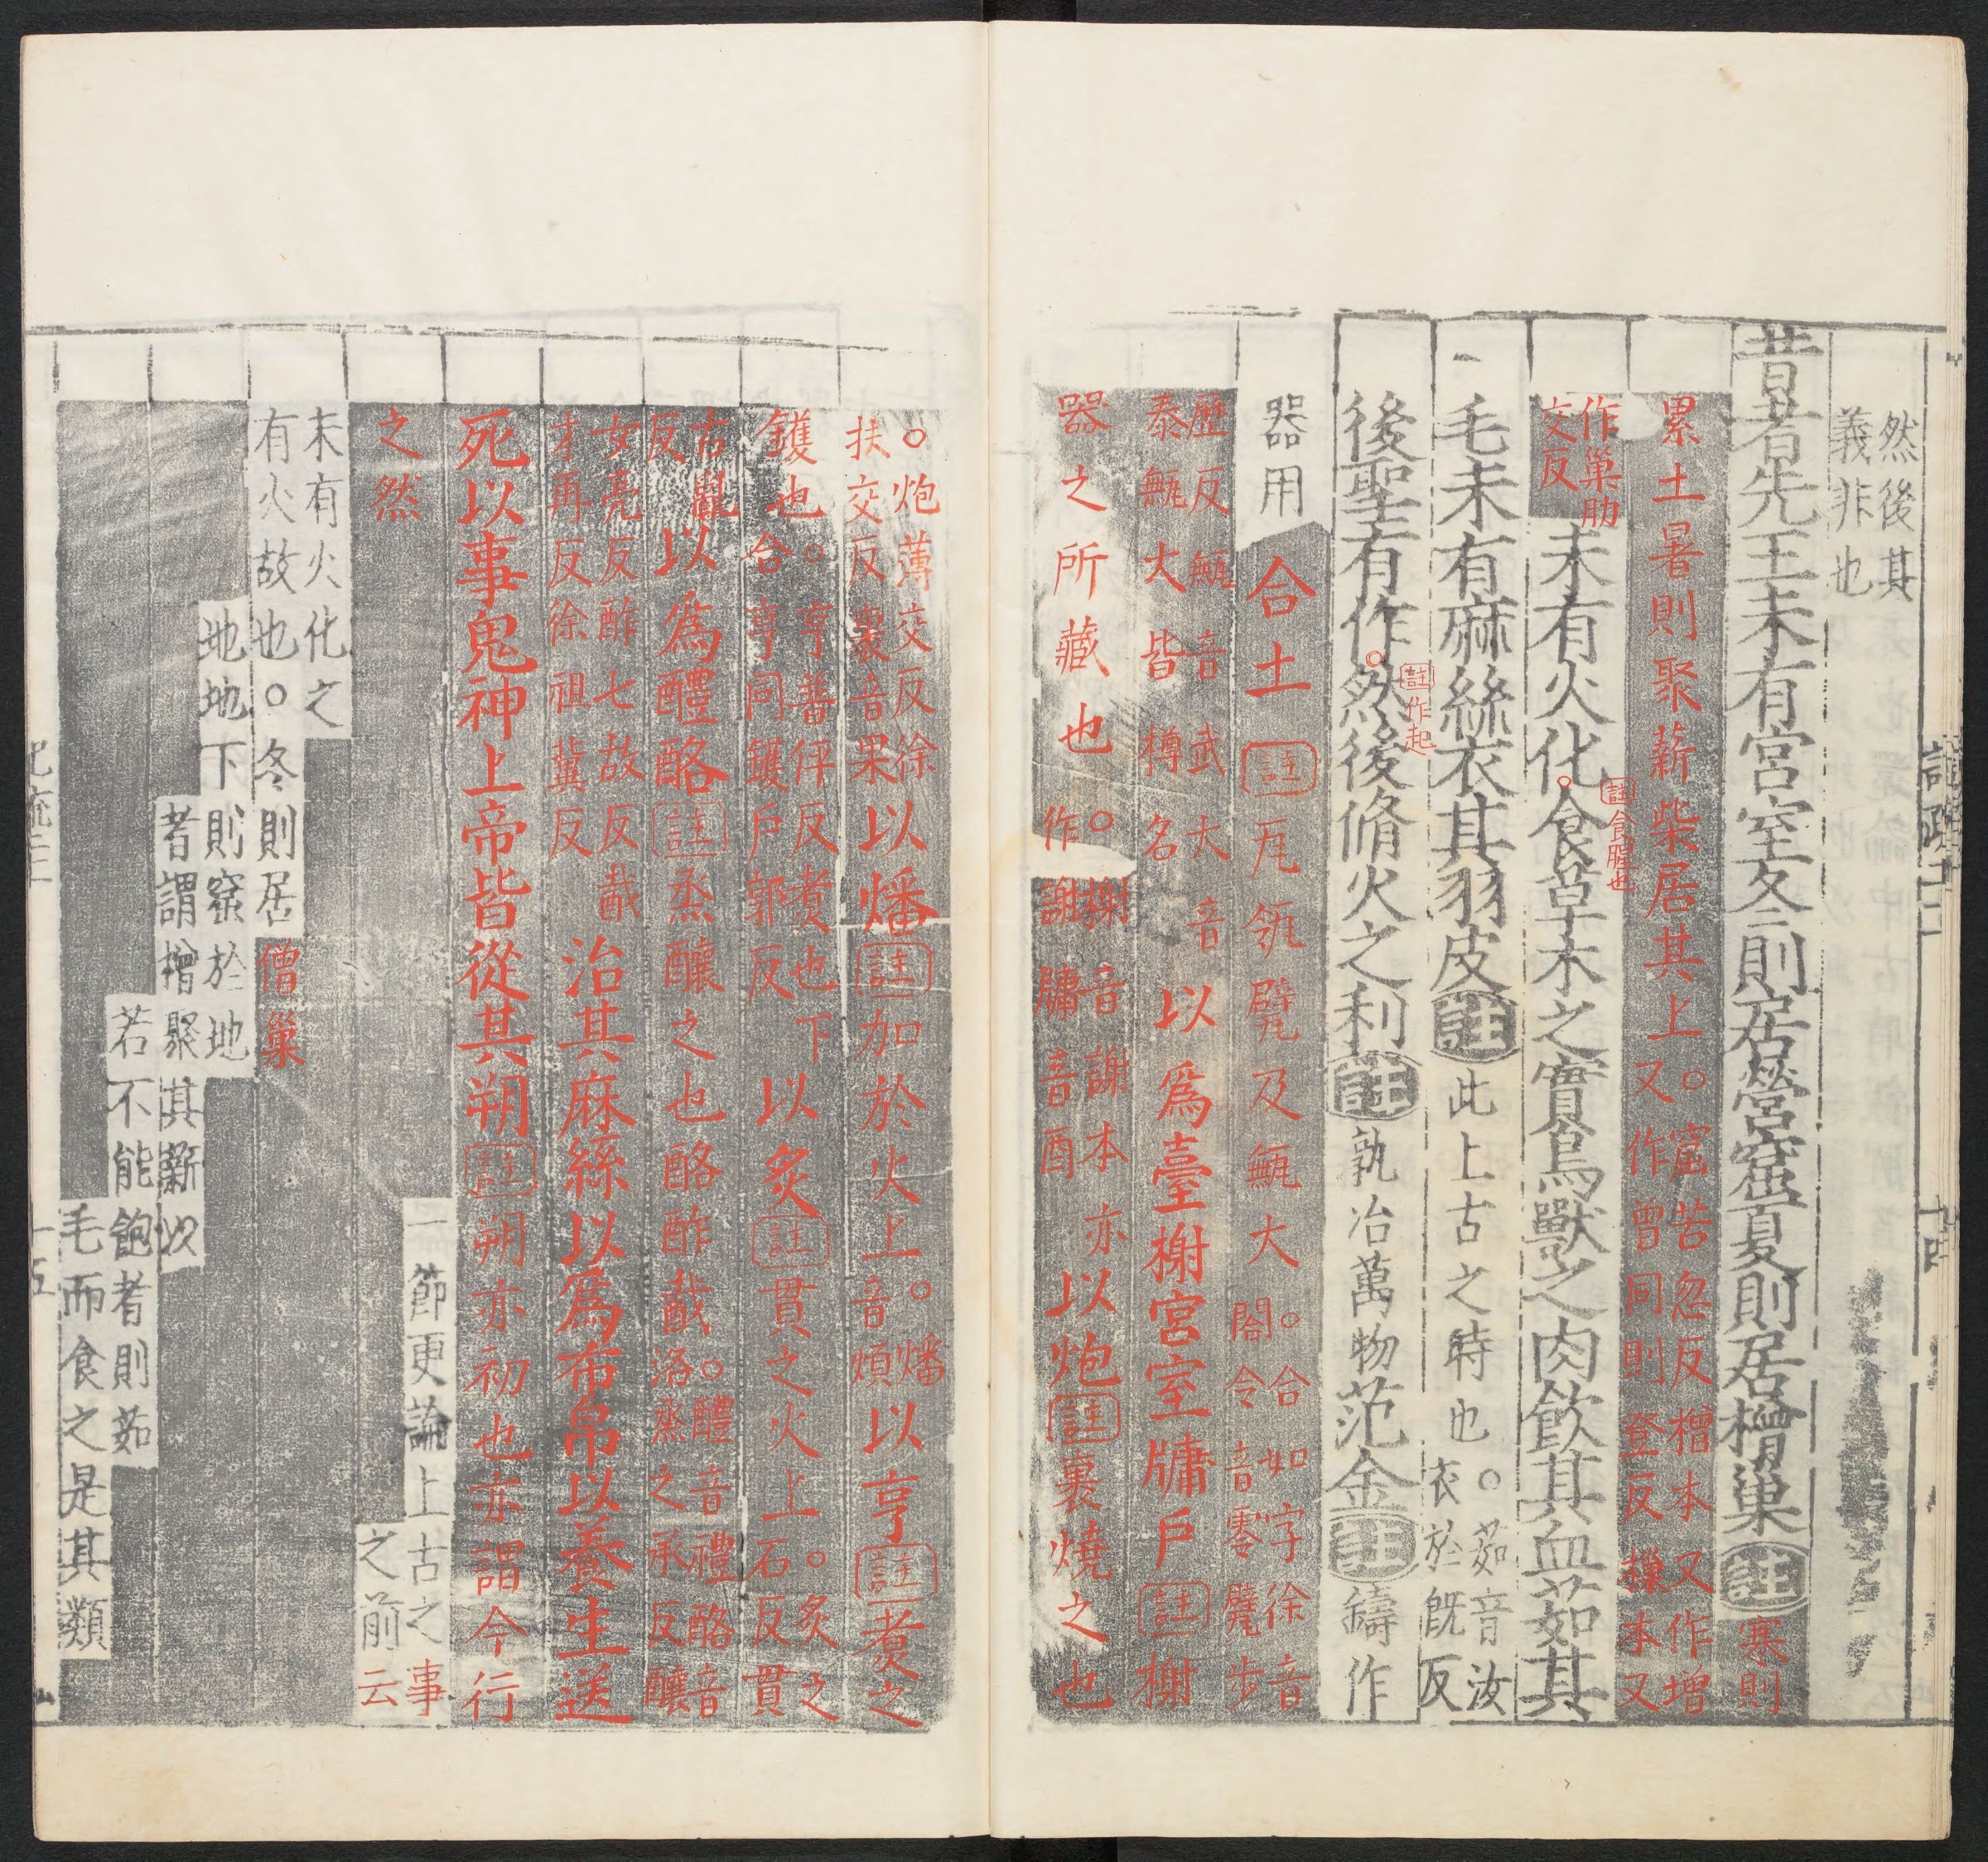 然後其
義非也
昔者先王未有宮室冬則居營窟夏則居橧巢註寒則
累土暑則聚薪柴居其上。窟苦忽反橧本又作增
又作曾同則登反樔本又
作巢助
交反
未有火化食草木之實鳥獸之肉飲其血茹其
註食腥也
毛未有麻絲衣其羽皮註此上古之時也。茹音汝
衣於既反
後聖有作然後脩火之利註孰冶萬物范金註鑄作
註作起
器用
合土註瓦瓴甓及甒大。合如字徐音
閤令音零甓步
歷反甒音武大音
泰甒大皆樽名
以爲臺榭宮室牖戶註榭
器之所藏也。榭音謝本亦
作謝牖音酉
以炮註裹燒之也
。炮薄交反徐
扶交反裹音果
以燔註加於火上。燔
音煩
以亨註煑之
鑊也。亨普伻反煑也下
合亨同鑊戶郭反
以炙註貫之火上。炙之
石反貫
古亂
反
以爲醴酪註烝釀之也酪酢酨。醴音禮酪音
洛烝之承反釀
女亮反酢七故反酨
才再反徐祖冀反
治其麻絲以爲布帛以養生送
死以事鬼神上帝皆從其朔註朔亦初也亦謂今行
之然
一節更論上古之事
之前云
未有火化之
有火故也。冬則居僧巢
地地下則窟於地
者謂橧聚其薪以
若不能飽者則茹
毛而食之是其類
記疏二
十五